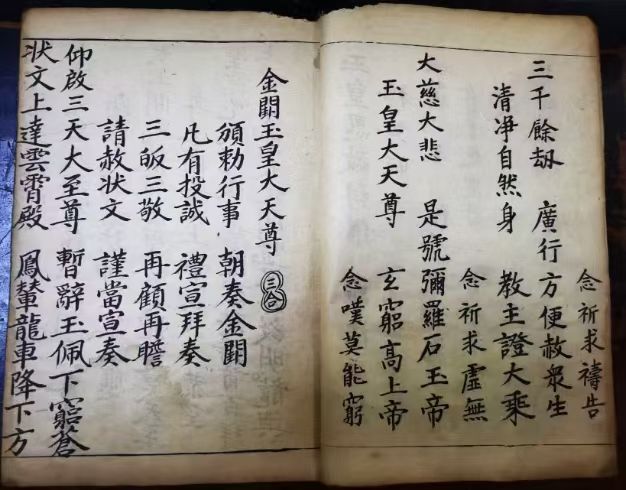 念祈求禱告
三千餘刼 廣行方便赦衆生
清凈自然身 教主證大乘
念祈求虛無
大慈大悲 是號彌羅石玉帝
玉皇大天尊 玄窮高上帝
念噗莫能窮
金闕玉皇大天尊 三合
頒勅行事 朝奏金闕
凡有投誠 禮宣拜奏
三皈三敬 再顧再瞻
請赦狀文 謹當宣奏
仰啟三天大至尊 暫辭玉佩下窮蒼
狀文上達雲霄殿 鳳輦龍車降下方